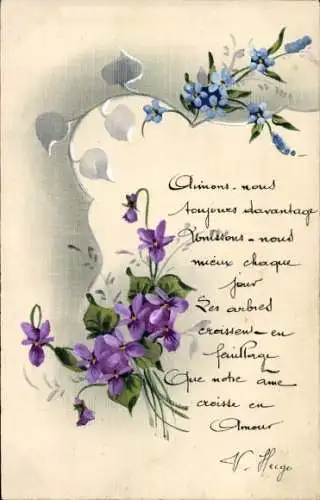 Aimons-nous
toujours davantage
Unissons-nous
mieux chaque
jour
Les arbres
croissent en
feuillage
Que notre âme
croisse en
Amour
V. Hugo